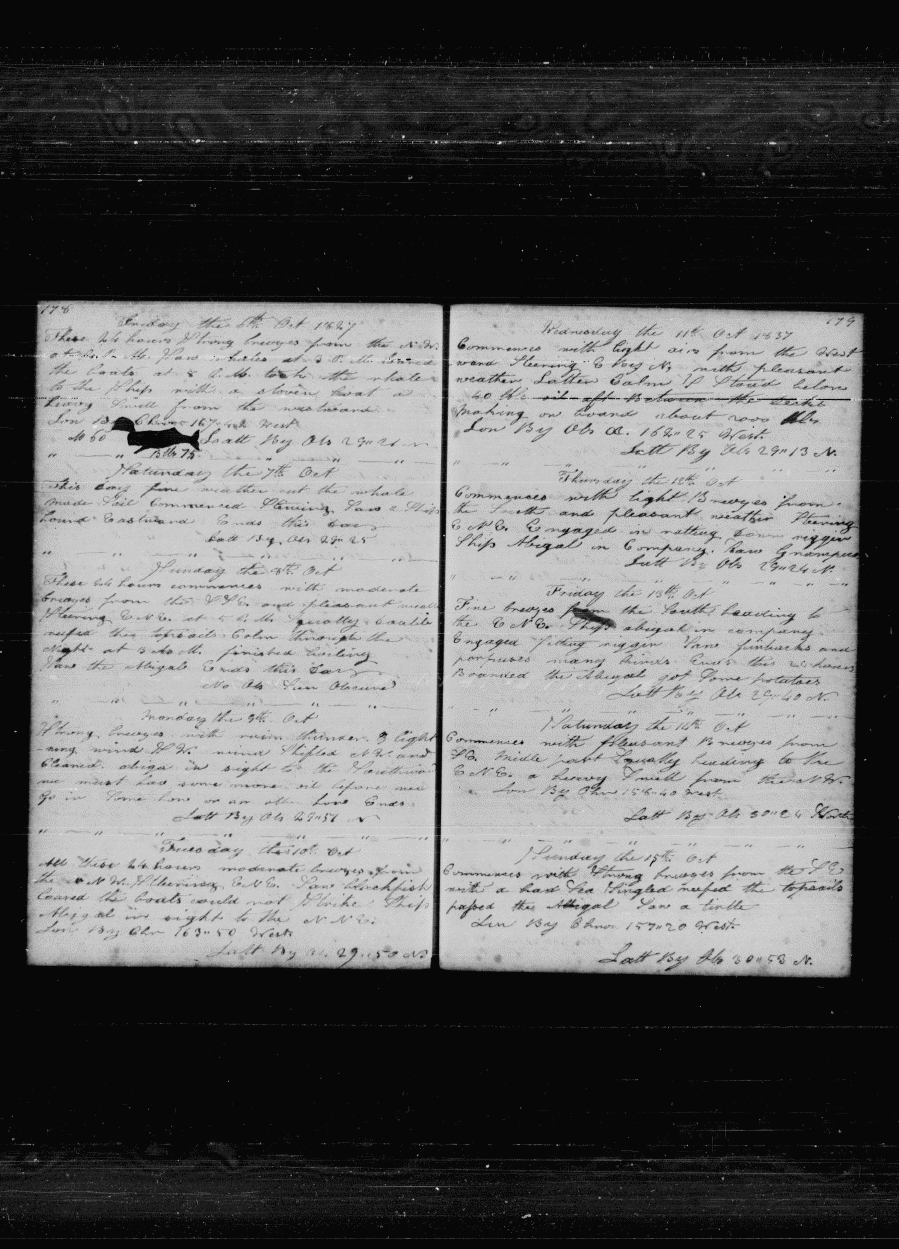 178
Friday the 6th Oct 1837
These 24 hours Strong breezes from the N.W.
at P. M. Saw whales at 3 P. M. Lowered
the boats, at 8 P.M. took the whale
to the Ship with a stoven boat a
heavy Swell from the westward
Lon By Chro 167 West
M 60 Latt By Obs 29" 21 N
Bbls 75
Saturday the 7th Oct
This day fine weather cut the whale
made Sail Commenced Steering Saw a Ship
bound Eastward Ends this day
Latt By Obs 29" 25
Sunday the 8th Oct
These 24 hours commences with moderate
breezes from the and pleasant weather
Steering E N E. at 5 P. M. Squally double
reefed the topsail Calm through the
Night at 3 A. M. finished boiling
Saw the Abigale Ends this day
No Obs Sun Obscured
Monday the 9th Oct
Strong breezes with rain thunder & light
-ning wind S W. wind Shifted N W. and
Cleared. abiga in sight to the Southward
we must has some more oil before we
go in Some how or an other how Ends
Latt By Obs 29" 51 N
Tuesday the 10th Oct
All these 24 hours moderate breezes from
the N W. Steering E N E. Saw blackfish
Lowred the boats could not Strike Ship
Abigal in sight to the N N E.
Lon By Chr 163" 50 West
Latt By Ob. 29" 50 N
179
Wednesday the 11th Oct 1837
Commences with light airs from the West
ward Steering E by N. with pleasant
weather Latter Calm & Stowd below
40 bbls oil aft Between the decks
making on board about 2000 bbls
Lon By Obs 162" 25 West.
Latt By Obs 29" 13 N.
Thursday the 12th Oct
Commences with light Breezes from
the South and pleasant weather Steering
E N E. Engaged in ratling down riggin
Ship Abigal in Company. Saw Grampus
Latt By Obs 29" 24 N.
Friday the 13th Oct
Fine breezes from the South heading to
the E N E. Ship abigal in company
Engaged fitting riggin Saw finbacks and
porpuses many kinds Ends this 24 hours
Boarded the Abigal got Some potatoes
Latt By Obs 29" 40 N.
Saturday the 14th Oct
Commences with pleasant Breezes from
Middle part Squally heading to the
E N E. a heavy Swell from the N W.
Lon By Chr 158" 40 West
Latt By Obs 30" 24 North
Sunday the 15th Oct
Commences with Strong breezes from the S E
with a bad Sea Single reefed the topsails
passed the Abigal Saw a turtle
Lon By Chro 157" 20 West
Latt By Ob 30" 53 N.